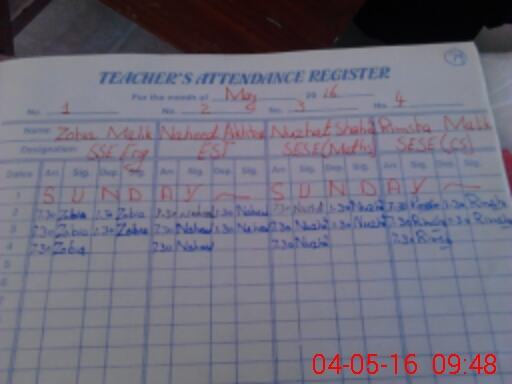 19
TEACHER'S ATTENDANCE REGISTER
For the month of May 2016
No. 1 No. 2 No. 3 No. 4
Name: Zobia Malik Naheed Akhtar Nuzhat Shahid Rimsha Malik
Designation: SSE Eng EST SESE (Maths) SESE (CS)
Dates Arr Sig. Dep Sig. Arr Sig. Dep Sig. Arr Sig. Dep Sig. Arr Sig. Dep Sig.
1 S U N D A Y S U N D A Y
2 7:30 Zobia 1:30 Zobia 7:30 Naheed 1:30 Naheed 7:30 1:30 7:30 Rimsha 1:30 Rimsha
3 7:30 Zobia 1:30 Zobia 7:30 Naheed 1:30 Naheed 7:30 1:30 7:30 Rimsha 1:30 Rimsha
4 7:30 Zobia 7:30 Naheed 7:30 7:30 Rimsha
5
6
7
8
9
04-05-16 09:48